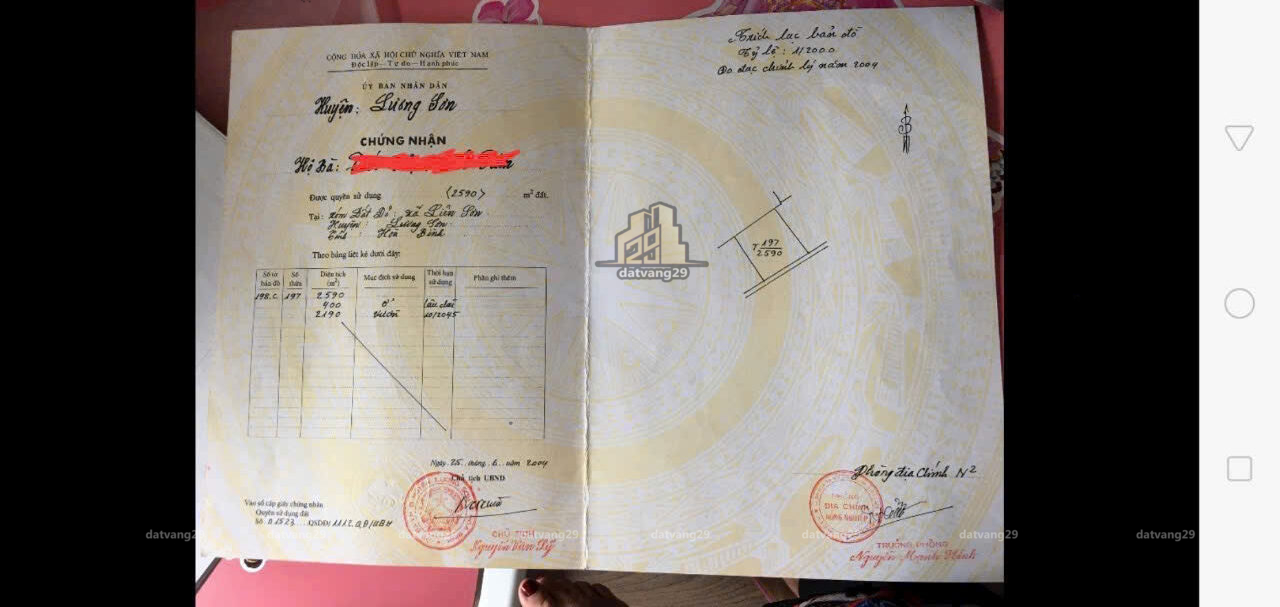 CỘNG HÒA XÃ HỘI CHỦ NGHĨA VIỆT NAM
Độc lập - Tự do - Hạnh phúc
ỦY BAN NHÂN DÂN
Huyện: Lương Sơn
CHỨNG NHẬN
Hộ Bà:
Được quyền sử dụng (2590) m² đất.
Tại: xóm Đất Đỏ xã Liên Sơn
Huyện: Lương Sơn
Tỉnh Hòa Bình
Theo bảng liệt kê dưới đây:
Số tờ bản đồ Số thửa Diện tích (m²) Mục đích sử dụng Thời hạn sử dụng Phần ghi thêm
198.C 197 2590
400 Ở Lâu dài
2190 Vườn 10/2045
Ngày 25 tháng 6 năm 2004
Chủ tịch UBND
Vào sổ cấp giấy chứng nhận
Quyền sử dụng đất
Số 01523 QSDĐ/1112.QĐ/UBH
CHỦ TỊCH
Nguyễn Văn Tỵ
Trích lục bản đồ
Tỷ lệ: 1/2000
Đo đạc chỉnh lý năm 2004
B
T 197
2590
Phòng địa Chính N²
ĐỊA CHÍNH
NÔNG NGHIỆP
TRƯỞNG PHÒNG
Nguyễn Mạnh Hình
29
datvang29
datvang29
datvang29
datvang29
datvang29
datvang29